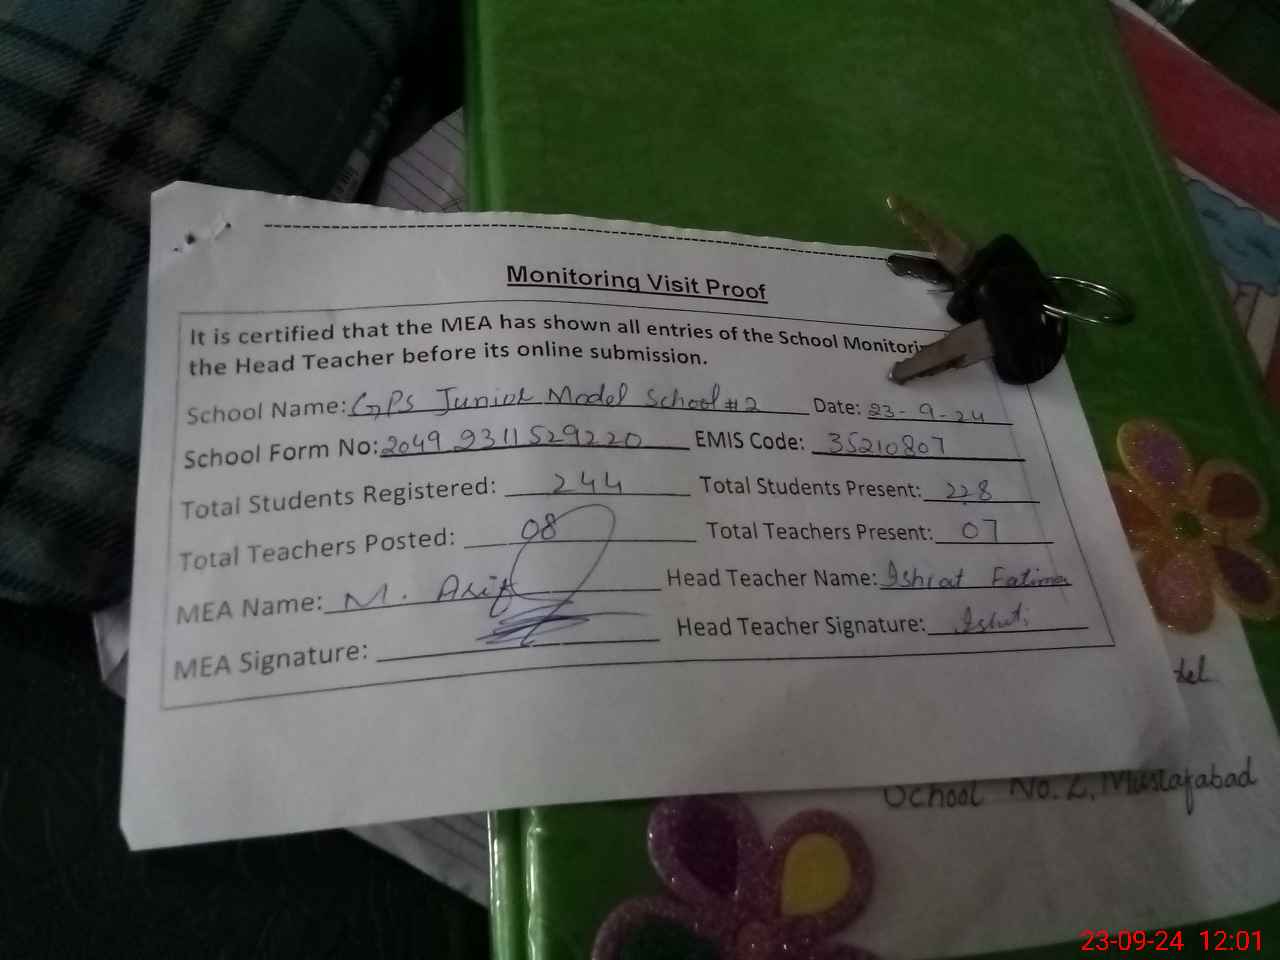 Monitoring Visit Proof
It is certified that the MEA has shown all entries of the School
the Head Teacher before its online submission.
School Name: GPS Junior Model School #2 Date: 23-9-24
School Form No: 2049 9311529220 EMIS Code: 35210807
Total Students Registered: 244 Total Students Present: 228
Total Teachers Posted: 08 Total Teachers Present: 07
MEA Name: M. Arif Head Teacher Name: Ishrat Fatima
MEA Signature: Head Teacher Signature:
School No. 2, Mustafabad
23-09-24 12:01